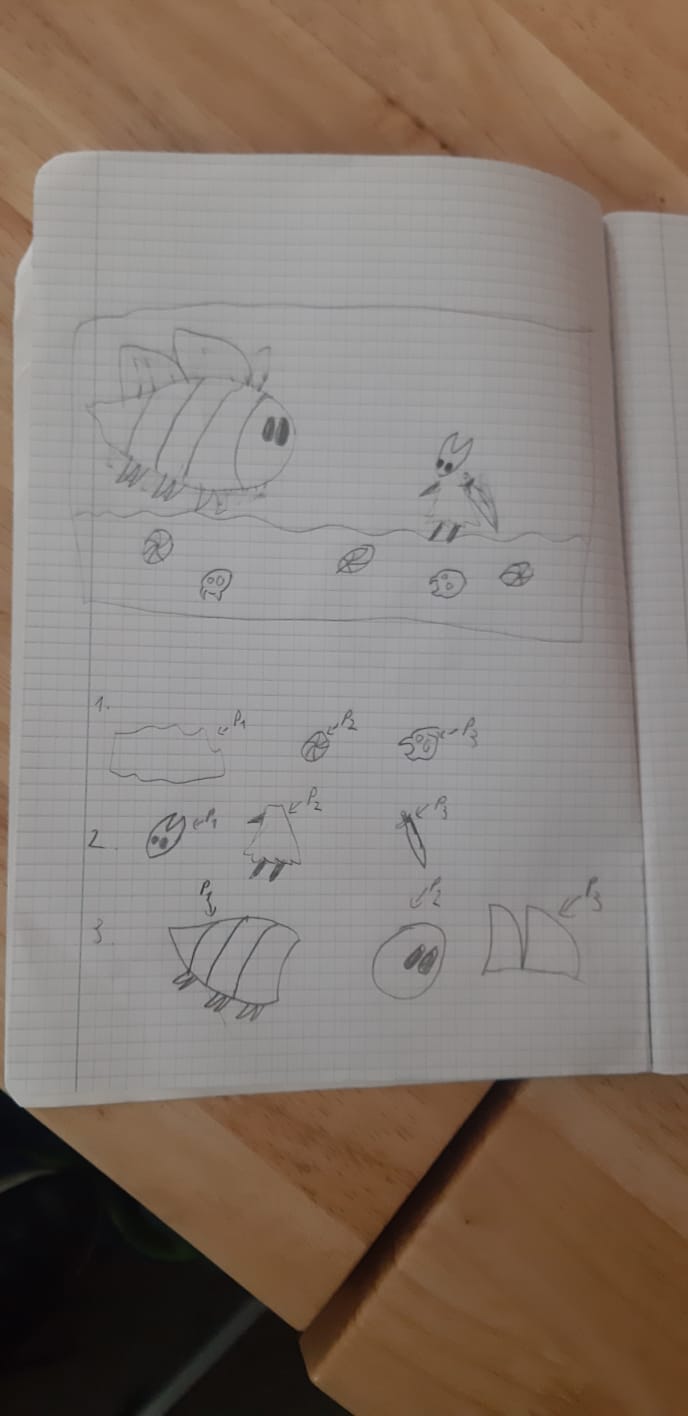 1.
P1 P2 P3
2. P1 P2 P3
3 P3 P2 P3